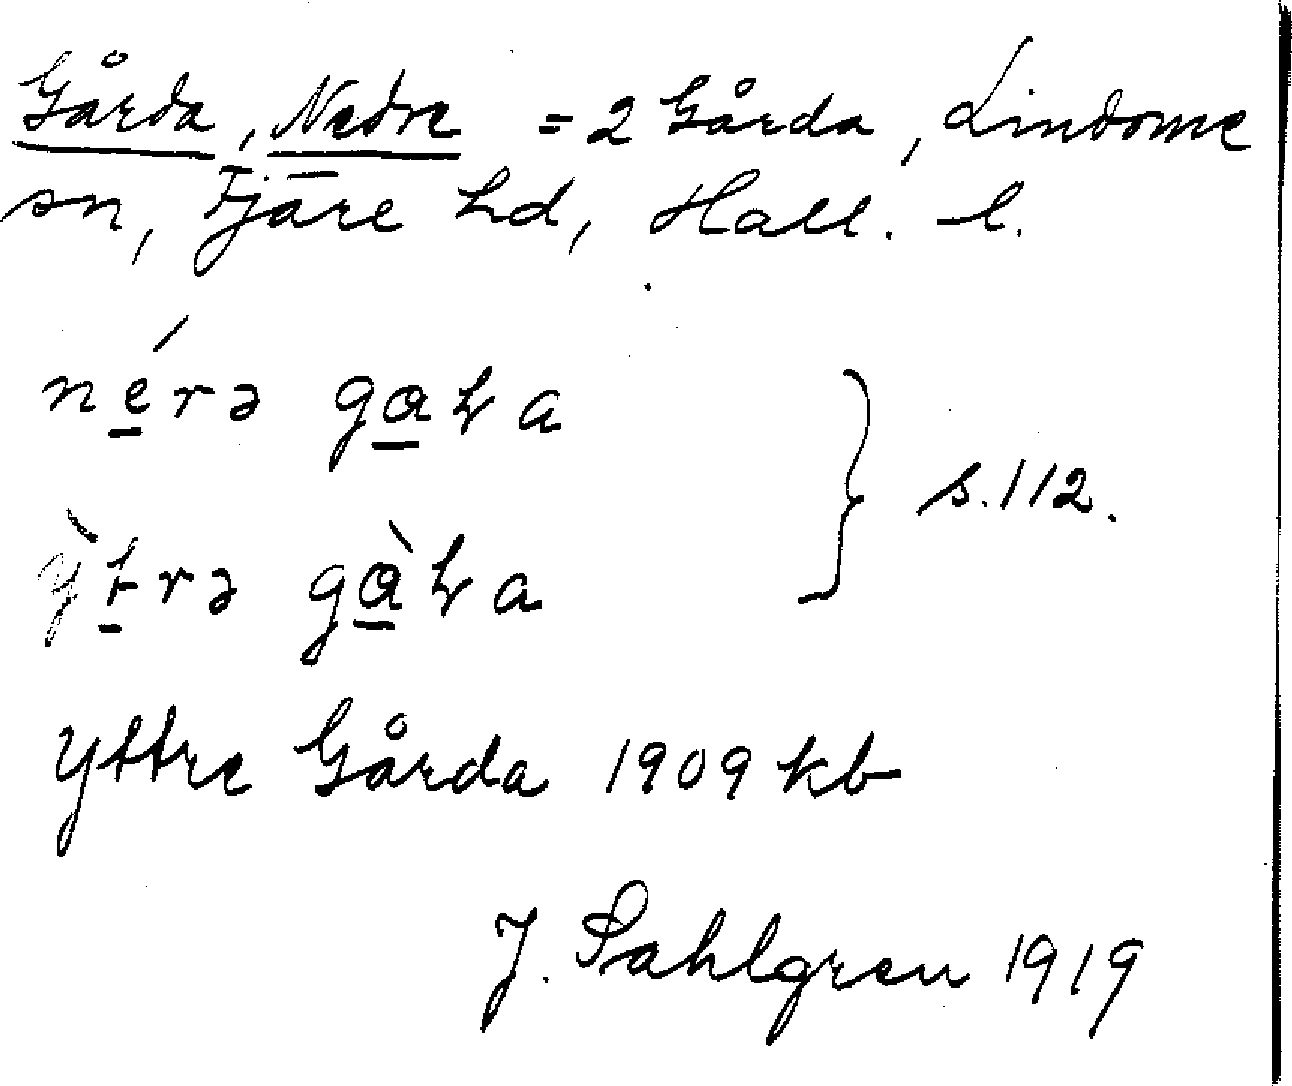 Gårda, Nedre = 2 Gårda, Lindome
sn, Fjäre hd, Hall. l.
nérə gaƚa
s. 112.
ỳtrə gàƚa
Yttre Gårda 1909 kb
J. Sahlgren 1919